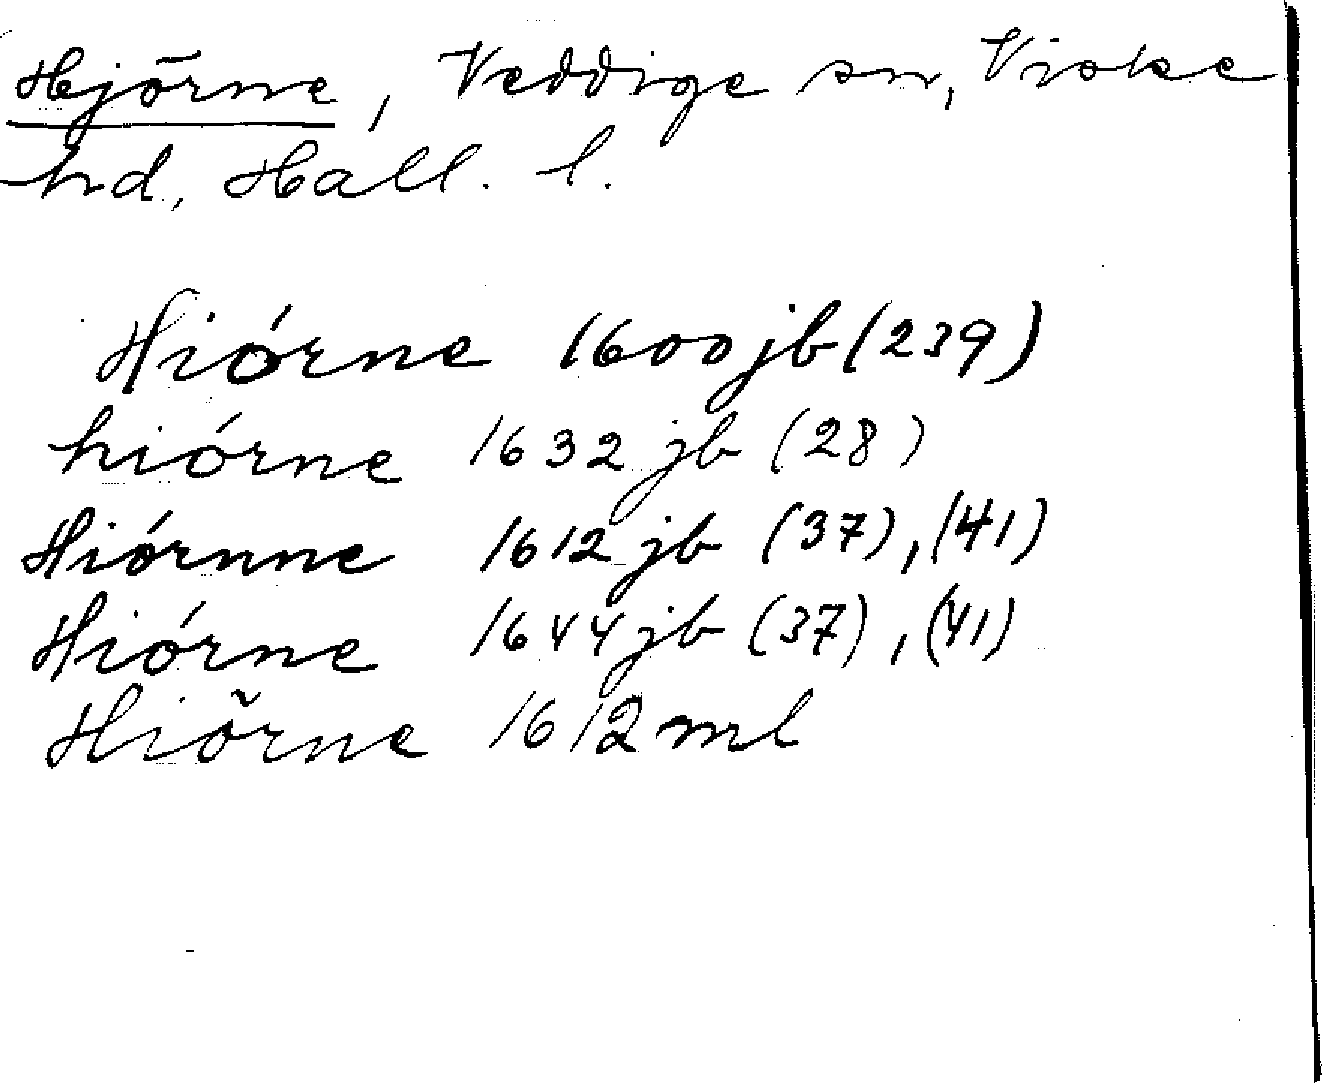 Hjörne, Veddige sn, Viske
hd., Hall. l.
Hiórne 1600 jb (239)
hiórne 1632 jb (28)
Hiórnne 1612 jb (37), (41)
Hiórne 1644 jb (37), (41)
Hiõrne 1612 ml